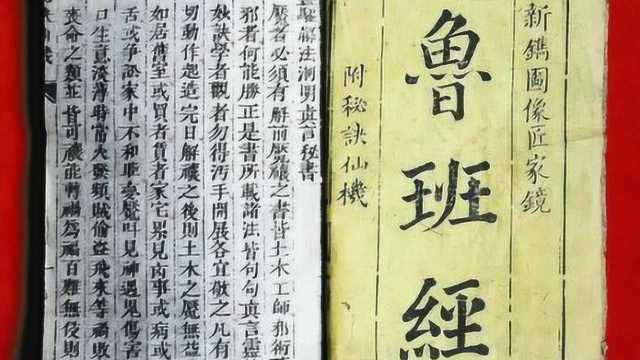 新鐫圖像匠家鏡
魯班經
附秘訣仙機
驅解法洞明真言秘書
魘者必須有解前魘禳之書皆土木工師邪術
邪者何能勝正是書所載諸法皆句句真言靈
妙訣學者觀者勿得汚手開展各宜敬之凡有
切動作起造完日解禳之後則土木之魘無益
如居舊室或買者賃者家宅累見凶事或病或
舌或爭訟家中不和睡夢魘叫見神遇鬼傷害
口生意淡薄時當火發頻賊偷盜飛來等禍敗
喪命之類並皆可禳能轉禍爲福百難無侵則